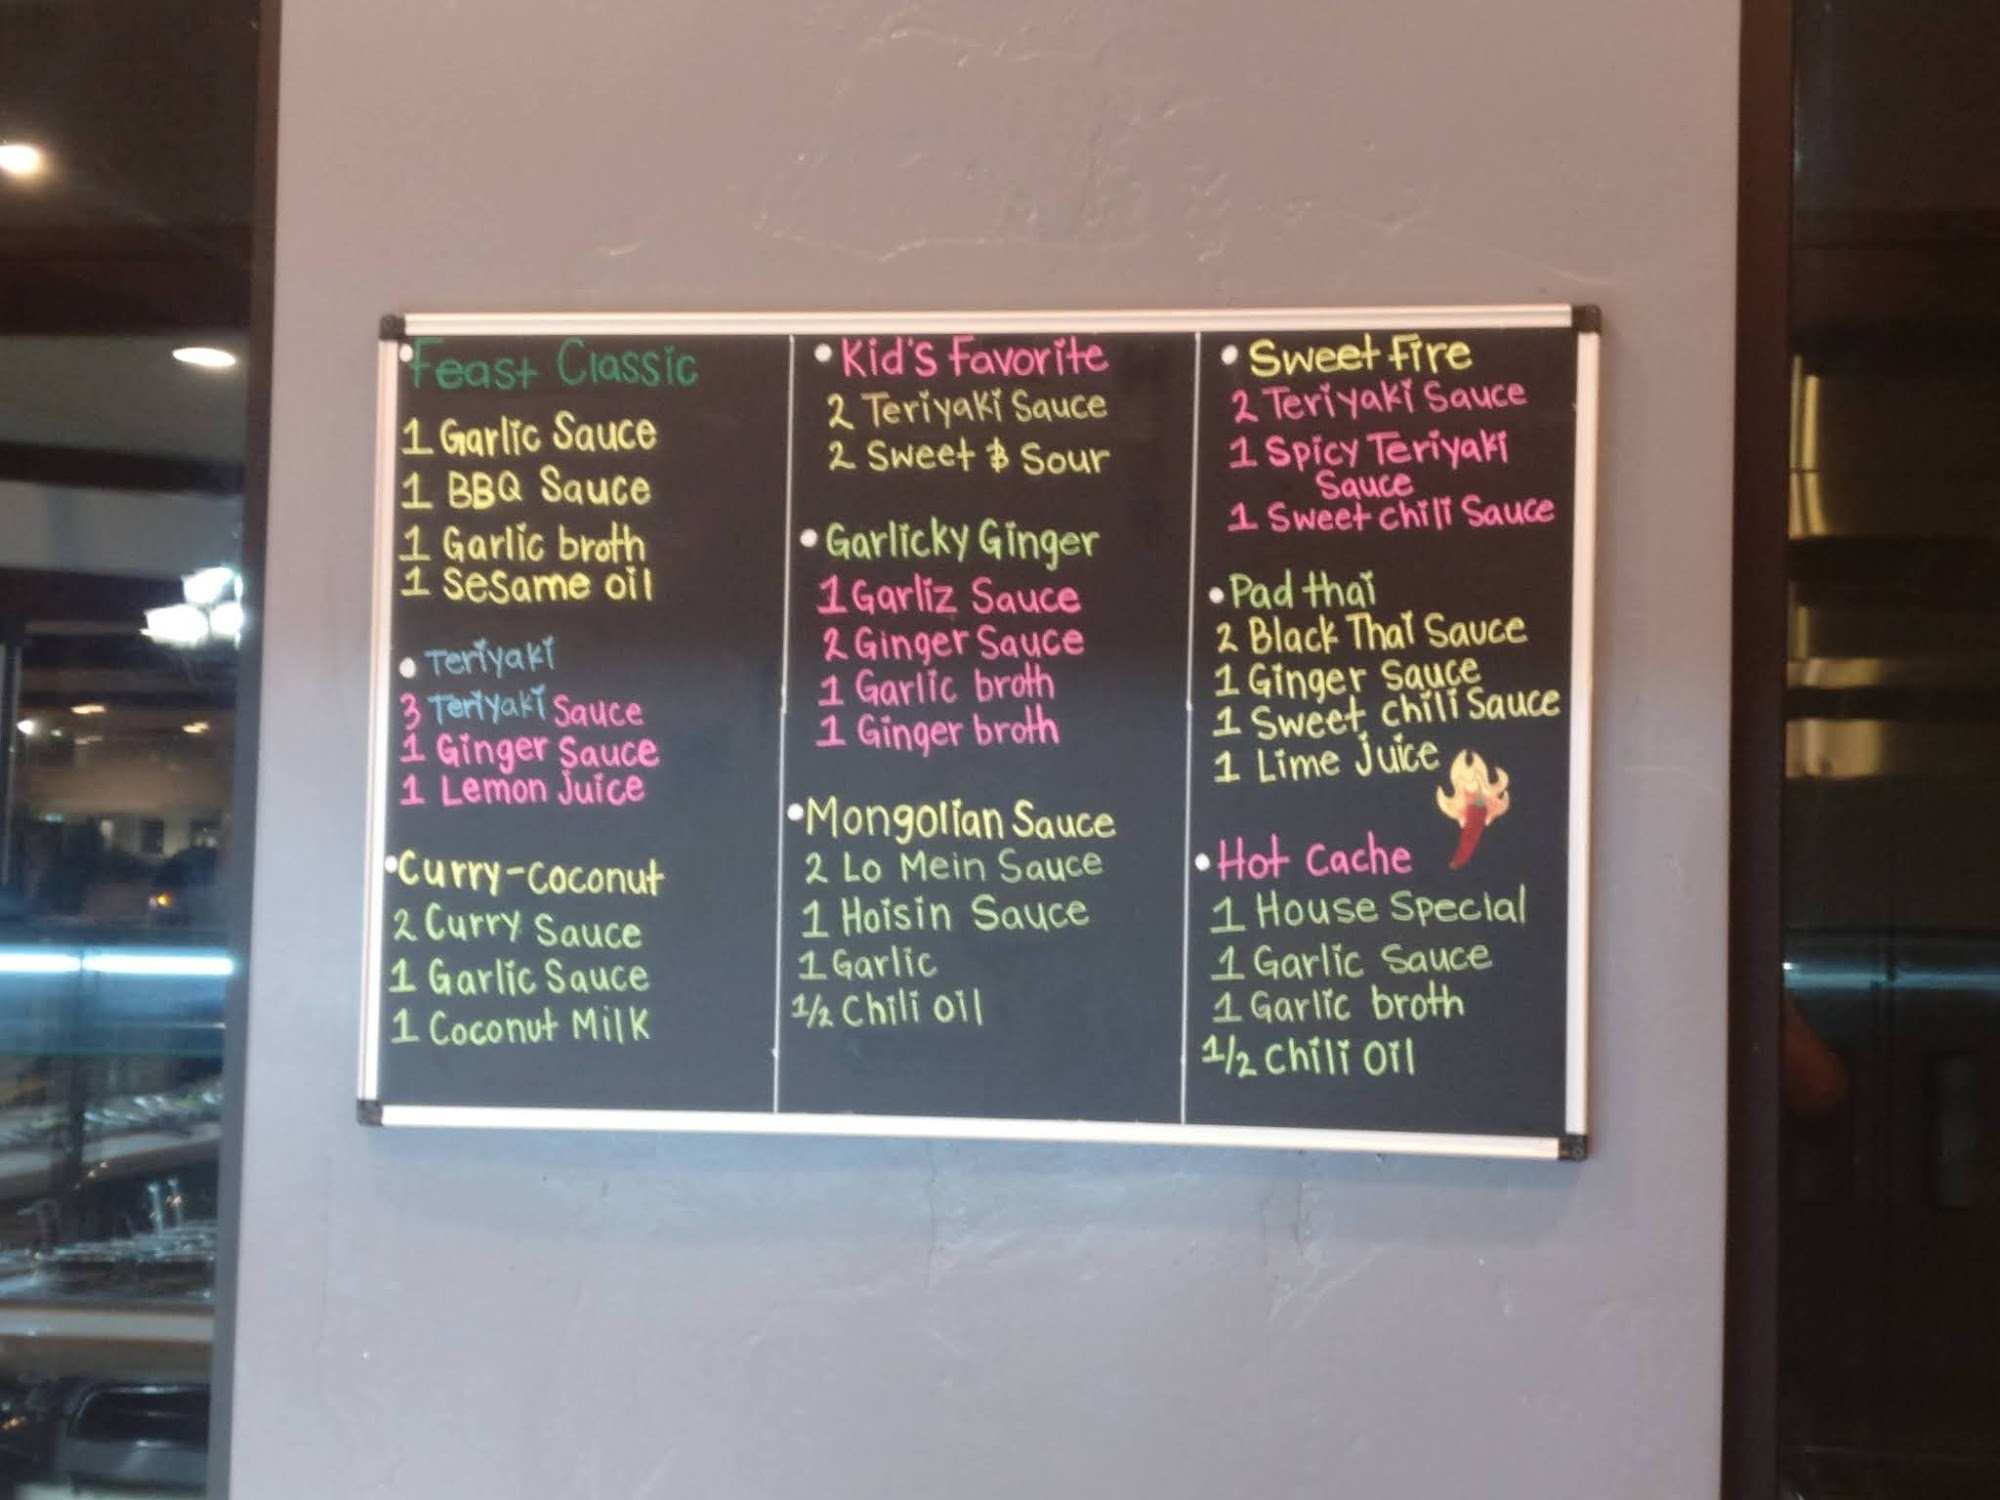 Feast Classic
1 Garlic Sauce
1 BBQ Sauce
1 Garlic broth
1 Sesame oil
• Teriyaki
3 Teriyaki Sauce
1 Ginger Sauce
1 Lemon Juice
• Curry-coconut
2 Curry Sauce
1 Garlic Sauce
1 Coconut Milk
• Kid's Favorite
2 Teriyaki Sauce
2 Sweet & Sour
• Garlicky Ginger
1 Garliz Sauce
2 Ginger Sauce
1 Garlic broth
1 Ginger broth
• Mongolian Sauce
2 Lo Mein Sauce
1 Hoisin Sauce
1 Garlic
1/2 Chili oil
• Sweet Fire
2 Teriyaki Sauce
1 Spicy Teriyaki
Sauce
1 Sweet chili Sauce
• Pad thai
2 Black Thai Sauce
1 Ginger Sauce
1 Sweet chili Sauce
1 Lime Juice
• Hot Cache
1 House Special
1 Garlic Sauce
1 Garlic broth
1/2 Chili Oil